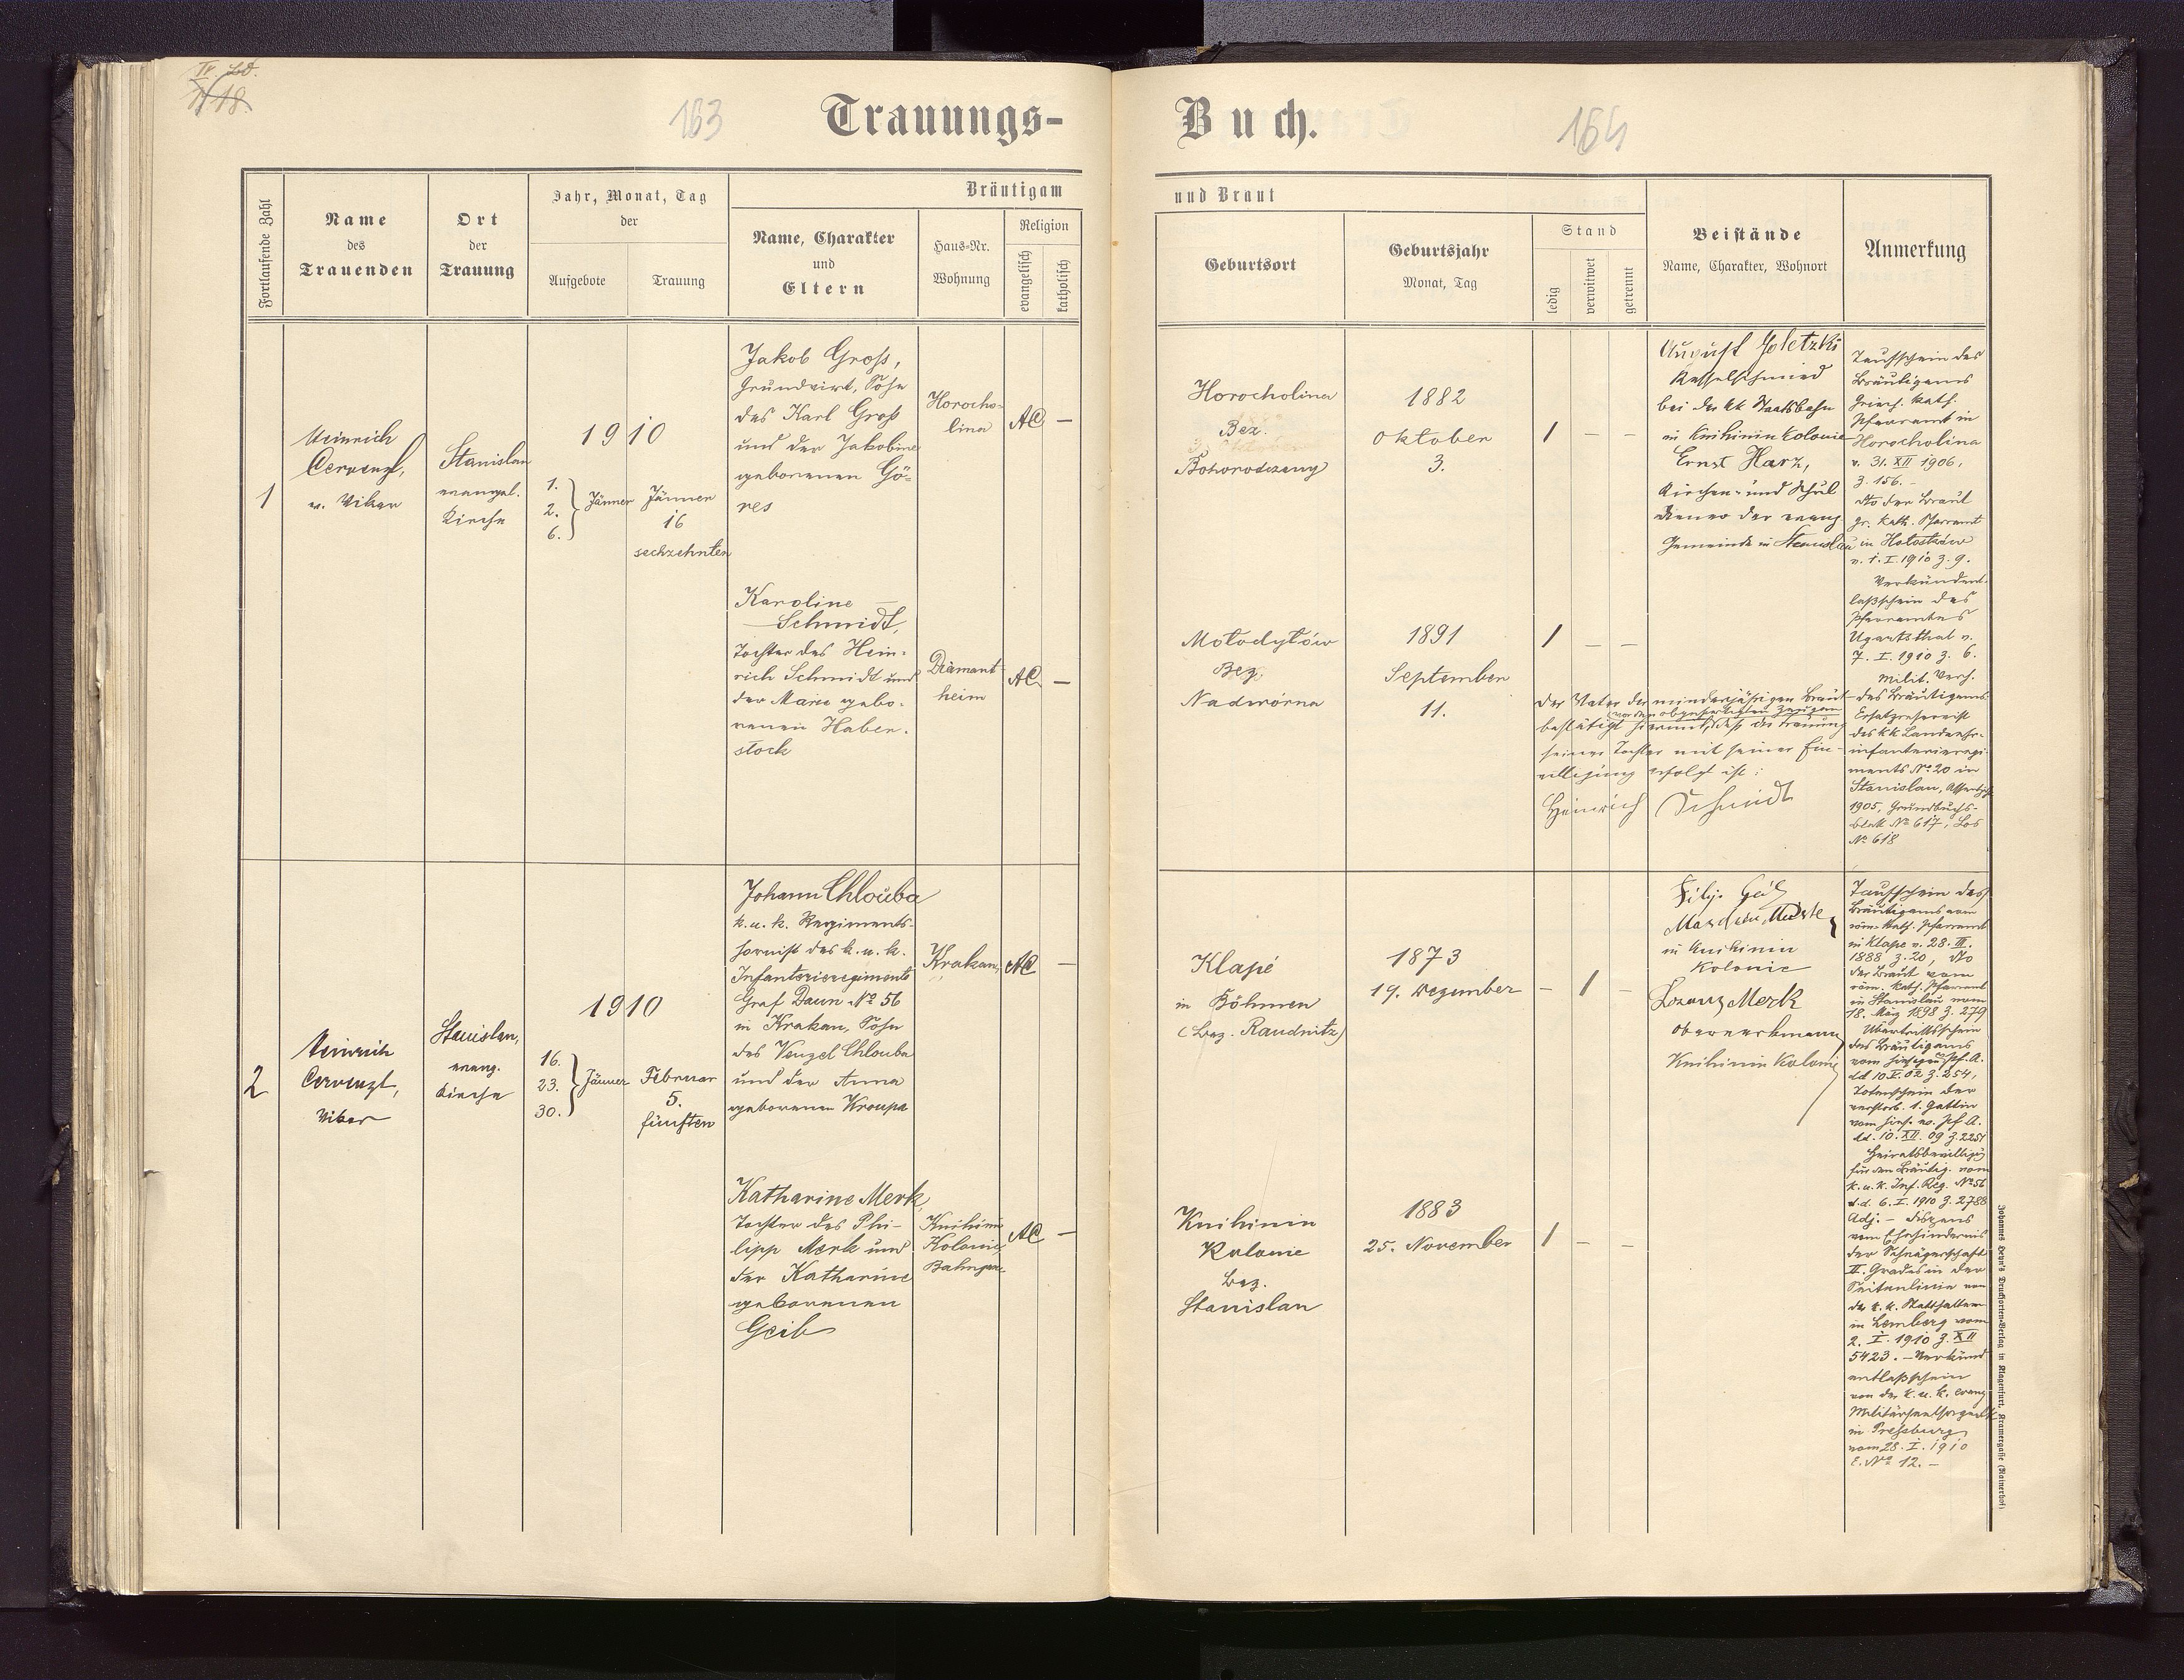 IV. Bd.
163
Trauungs-
Buch.
164
Fortlaufende Zahl
Name
des
Trauenden
Ort
der
Trauung
Jahr, Monat, Tag
der
Aufgebote
Trauung
Bräutigam
Name, Charakter
und
Eltern
Haus-Nr.
Wohnung
Religion
evangelisch
katholisch
und Braut
Geburtsort
Geburtsjahr
Monat, Tag
Stand
ledig
verwitwet
getrennt
Beistände
Name, Charakter, Wohnort
Anmerkung
1
Heinrich
Cervenzl,
ev. Vikar
Stanislau
evangel.
Kirche
1910
1.
2.
6.
Jänner
Jänner
16
sechzehnten
Jakob Groß,
Grundwirt, Sohn
des Karl Groß
und der Jakobine
geborenen Gö-
res
Horocho-
lina
AC
—
Horocholina
Bez.
Bohorodczany
1882
Oktober
3.
1 — —
August
Kesselschmied
bei der kk Staatsbahn
in Knihinin Kolonie
Ernst Harz,
Kirchen- und Schul
diener der evang.
Gemeinde in Stanislau
Taufschein des
Bräutigams
Griech. kath.
Pfarramt in
Horocholina
v. 31. XII 1906,
Z. 156. —
dto der Braut
gr. kath. Pfarramt
in Hołosków
v. 1. I. 1910 Z. 9.
Verkündent-
laßschein des
Pfarramtes
Ugartsthal v.
7. I. 1910 Z. 6.
Milit. Verh.
des Bräutigams
Ersatzreservist
des kk Landwehr-
infanterieregi-
ments No 20 in
Stanislau,
1905, Grundbuchs-
blatt No 617, Los
No 618
Karoline —
— Schmidt,
Tochter des Hein-
rich Schmidt und
der Marie gebo-
renen Haben-
stock
Diamant-
heim
AC
—
Mołodyłów
Bez.
Nadwórna
1891
September
11.
1 — —
Der Vater der minderjährigen Braut
vor den obgefertigten Zeugen
bestätigt hiermit, daß die Trauung
seiner Tochter mit seiner Ein-
willigung erfolgt ist:
Heinrich Schmidt
2
Heinrich
Cervenzl,
Vikar
Stanislau,
evang.
Kirche
1910
16.
23.
30.
Jänner
Februar
5.
fünften
Johann Chlouba
k. u. k. Regiments-
hornist des k. u. k.
Infanterieregiments
Graf Daun No 56
in Krakau, Sohn
des Wenzel Chlouba
und der Anna
geborenen Kroupa
Krakau,
AC
—
Klapé
in Böhmen
(Bez. Raudnitz)
1873
19. Dezember
— 1 —
in Knihinin
Kolonie
Lorenz Merk
Oberwerkmann
Knihinin Kolonie
Taufschein des
Bräutigams vom
röm. kath. Pfarramt
in Klapé v. 28. III.
1888 Z. 20, dto
der Braut vom
röm. kath. Pfarramt
in Stanislau vom
18. März 1898 Z. 279
Übertrittsschein
des Bräutigams
vom hiesigen Pf. A.
dd 10. V. 02 Z. 254,
Totenschein der
verstorb. 1. Gattin
vom hies. ev. Pf. A.
dd. 10. XII. 09 Z. 2251
Heiratsbewilligg
für den Bräutig. vom
k. u. k. Inf. Reg. No 56
d. d. 6. I. 1910 Z. 2788
Adj. — Dispens
vom Ehehindernis
der Schwägerschaft
II. Grades in der
Seitenlinie von
der k. k. Statthalterei
in Lemberg vom
2. I. 1910 Z. XII
5423. — Verkünd
entlaßschein
von der k. u. k. evang
Militärseelsorge
in Preßburg
vom 28. I. 1910
E. No 12. —
Katharine Merk,
Tochter des Phi-
lipp Merk und
der Katharine
geborenen
Geib
Knihinin
Kolonie,
AC
—
Knihinin
Kolonie
Bez.
Stanislau
1883
25. November
1 — —
Johannes Heyn's Drucksorten-Verlag in Klagenfurt, Kramergasse (Rainerhof).